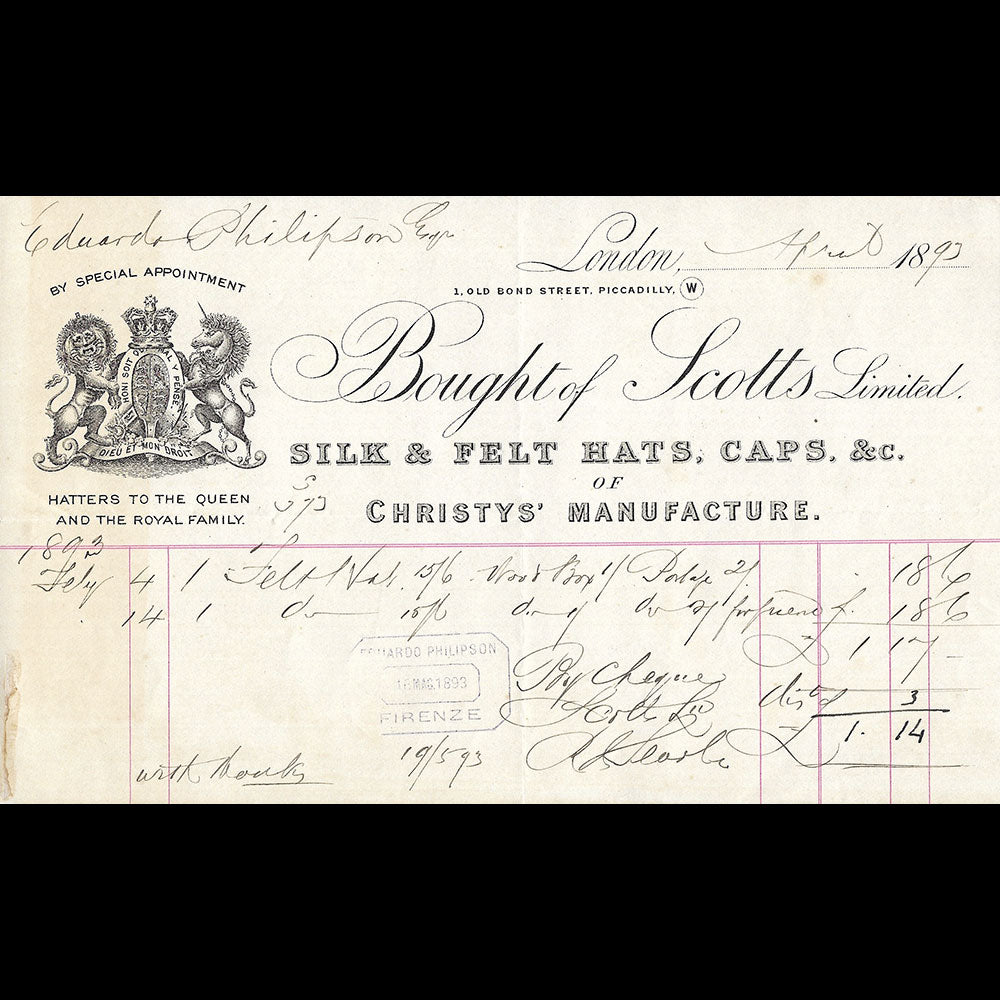 Eduardo Philipson Esqr
London, April 1893
BY SPECIAL APPOINTMENT
1, OLD BOND STREET, PICCADILLY, W
HONI SOIT QUI MAL Y PENSE
DIEU ET MON DROIT
Bought of Scotts Limited.
SILK & FELT HATS, CAPS, &c.
OF
HATTERS TO THE QUEEN
AND THE ROYAL FAMILY.
CHRISTYS' MANUFACTURE.
1893
Feby 4 1 Felt Hat 15/6 Wood Box 1/ Postage 2/ . 18 6
14 1 do 15/6 do 1/ do 2/ for friend 18 6
£ 1 17 -
EDUARDO PHILIPSON
16 MAG. 1893
FIRENZE
By Cheque
dist 3
Scotts Ld
£ 1. 14
19/5 93
with thanks